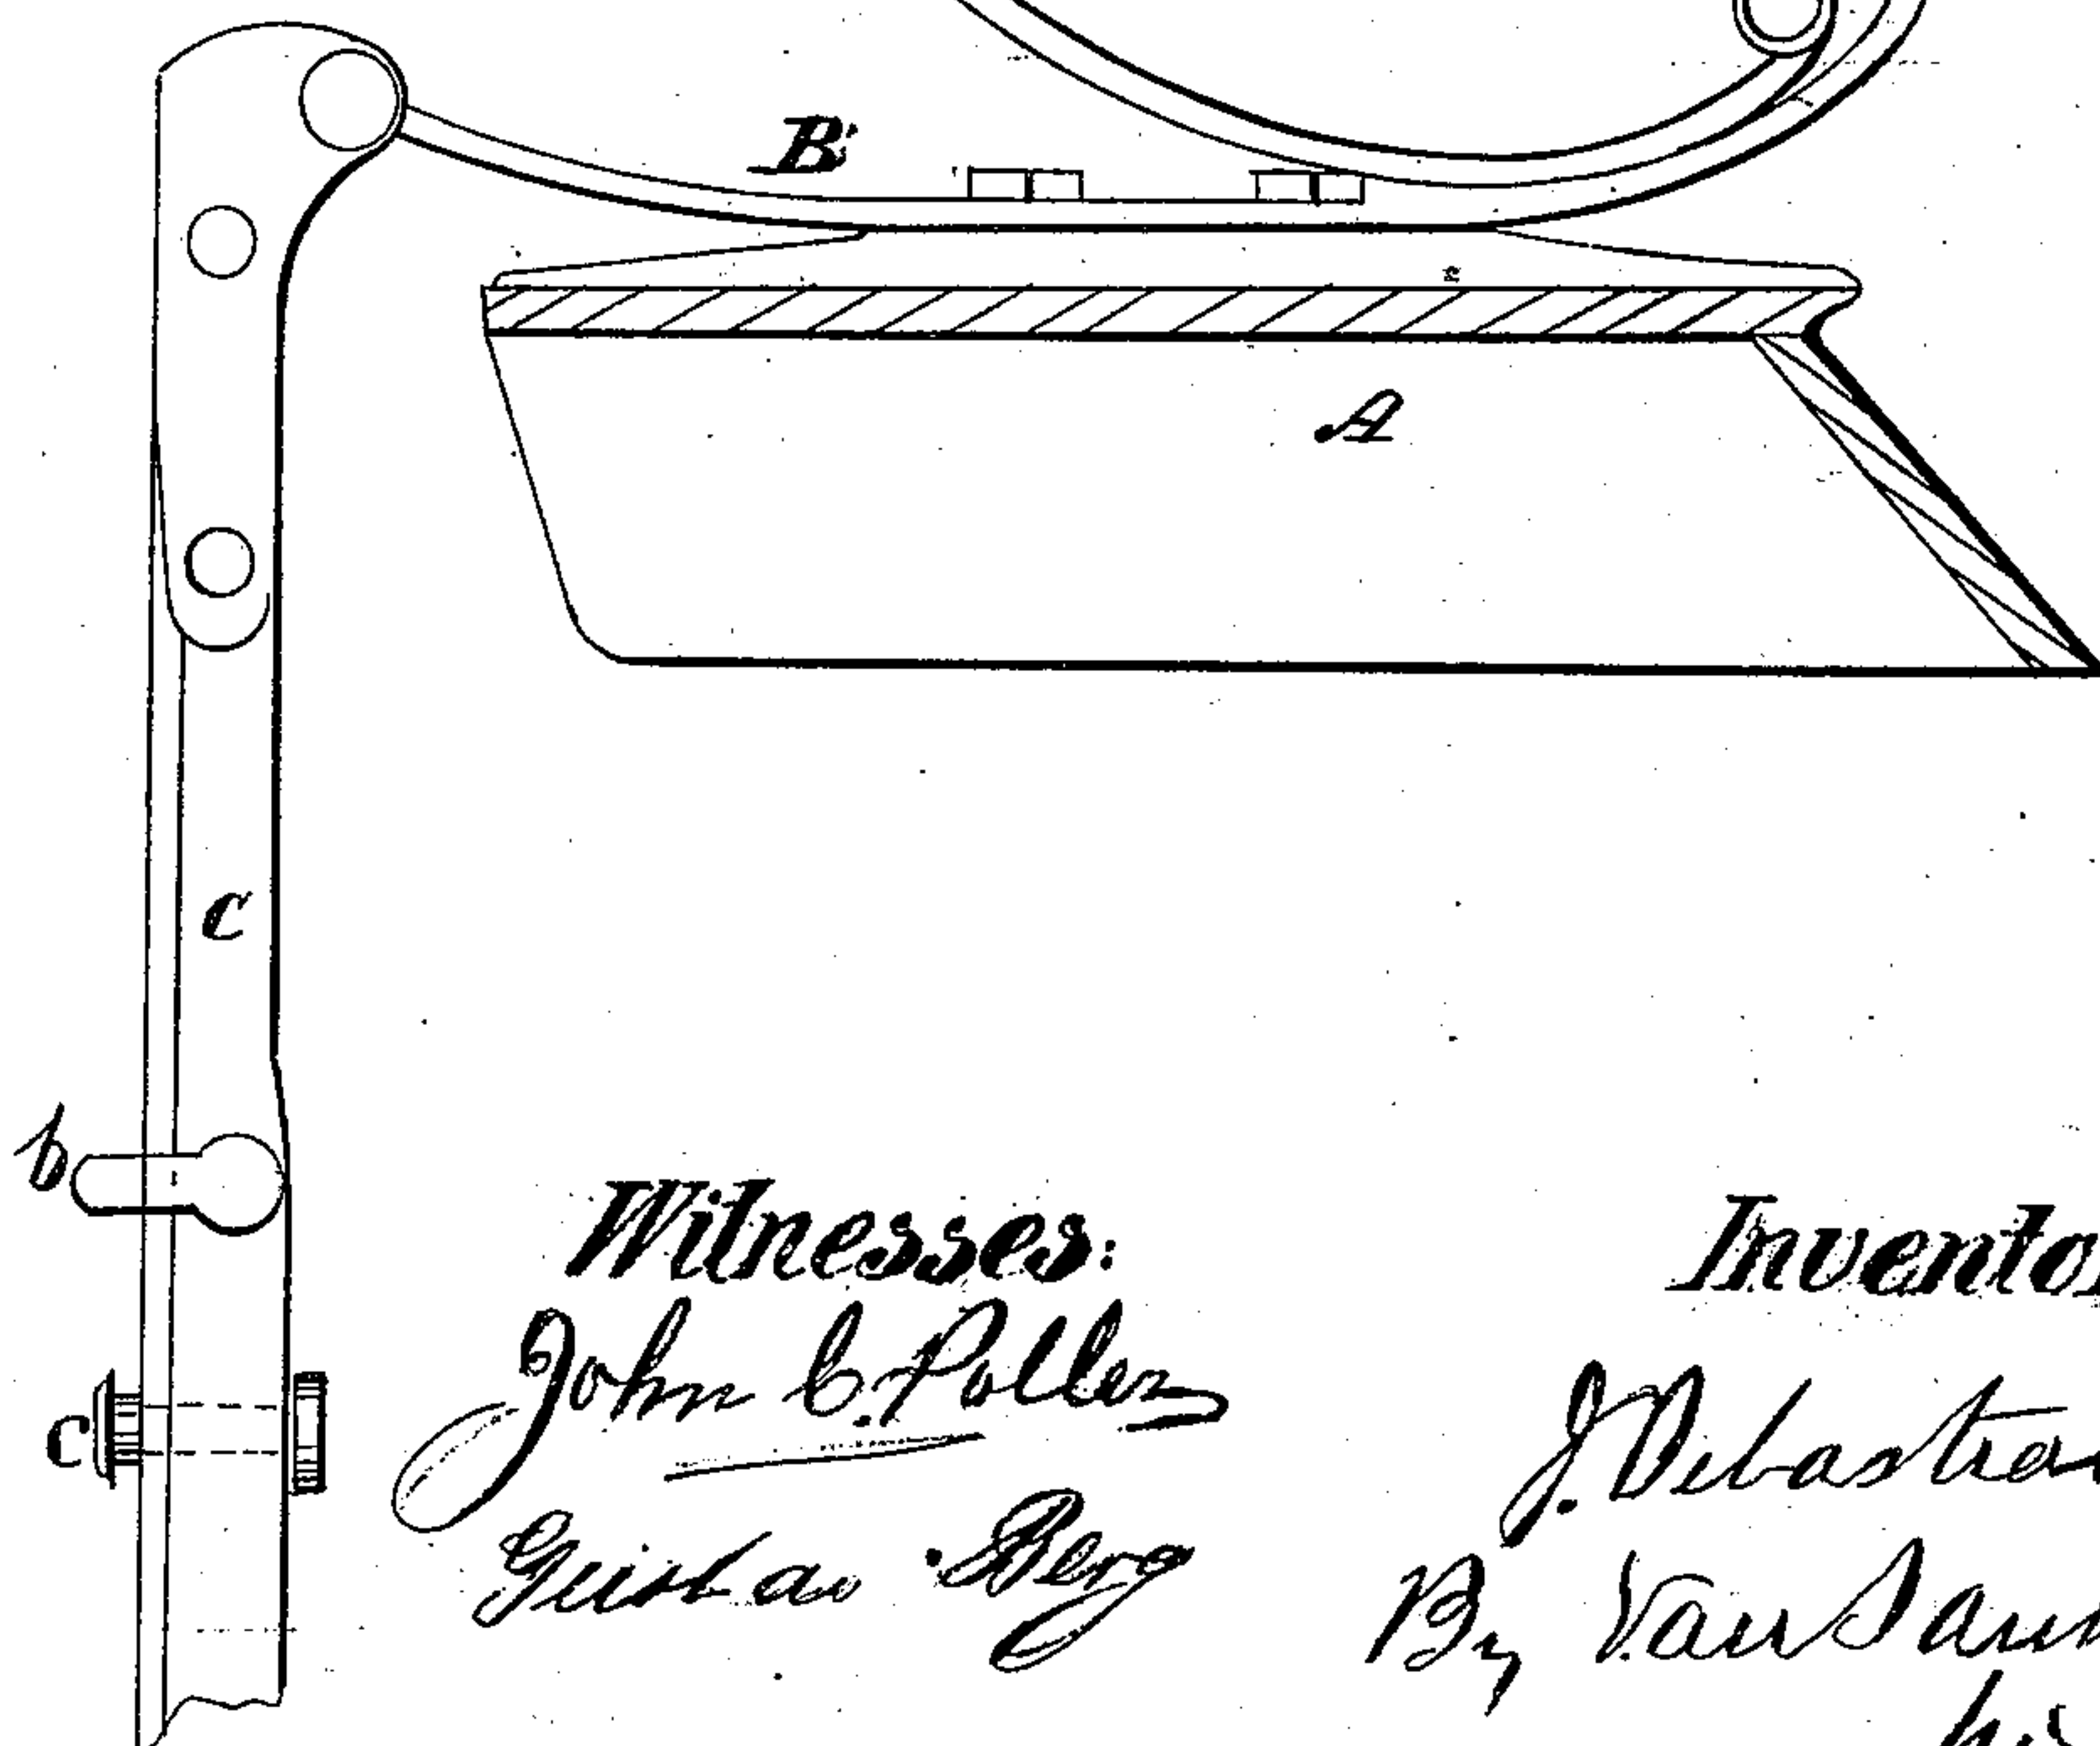 B'
A
c
b
c
Witnesses:
John C. Pollez
Gustav Berg
Inventor
J. Debastro
By Van San